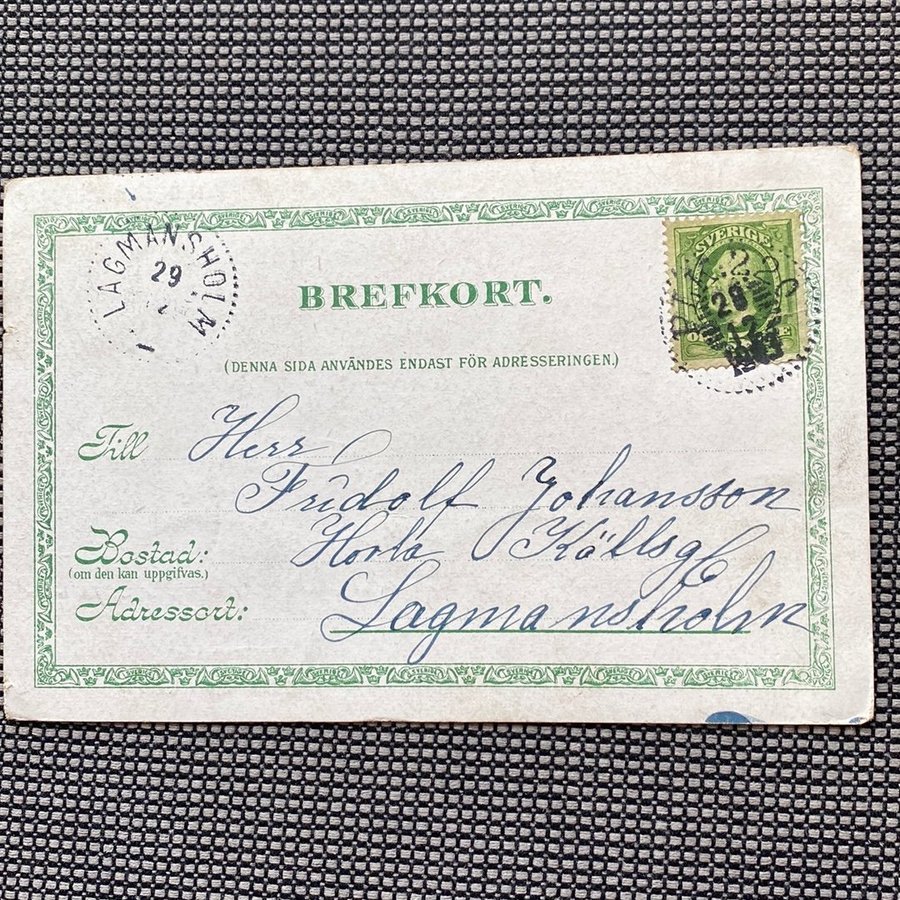 LAGMANSHOLM
29
SVERIGE
29
12
BREFKORT.
(DENNA SIDA ANVÄNDES ENDAST FÖR ADRESSERINGEN.)
Till Herr
Fridolf Johansson
Bostad: Horla Källsg
(om den kan uppgifvas.)
Adressort: Lagmansholm